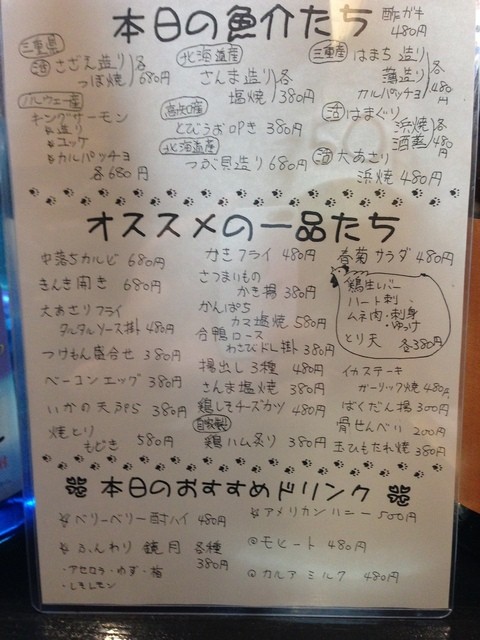 本日の魚介たち
酢ガキ
480円
三重県
活 さざえ造り 各
つぼ焼 680円
北海道産
さんま造り 各
塩焼 380円
三重産 はまち 造り
薄造り 各
カルパッチョ 480円
ノルウェー産
キングサーモン
造り
ユッケ
カルパッチョ
各680円
高知産
とびうお叩き 380円
北海道産
つぶ貝造り 680円
活 はまぐり
浜焼 各
酒蒸 480円
活 大あさり
浜焼 480円
オススメの一品たち
中落ちカルビ 680円
きんき開き 680円
大あさりフライ
タルタルソース掛 480円
つけもん盛合せ 380円
ベーコンエッグ 380円
いかの天ぷら 380円
焼とり
もどき 580円
かきフライ 480円
さつまいもの
かき揚 380円
かんぱち
カマ塩焼 580円
合鴨ロース
わさびドレ掛 380円
揚出し3種 480円
さんま塩焼 380円
鶏しそチーズカツ 480円
自家製
鶏ハム炙り 380円
春菊サラダ 480円
鶏生レバー
ハート刺
ムネ肉・刺身
・ゆっけ
とり天 各380円
イカステーキ
ガーリック焼 480円
ばくだん揚 300円
骨せんべい 200円
玉ひもたれ焼 380円
本日のおすすめドリンク
ベリーベリー酎ハイ 480円
ふんわり 鏡月 各種
380円
・アセロラ・ゆず・梅
・レモン
アメリカンハニー 500円
モヒート 480円
カルアミルク 480円